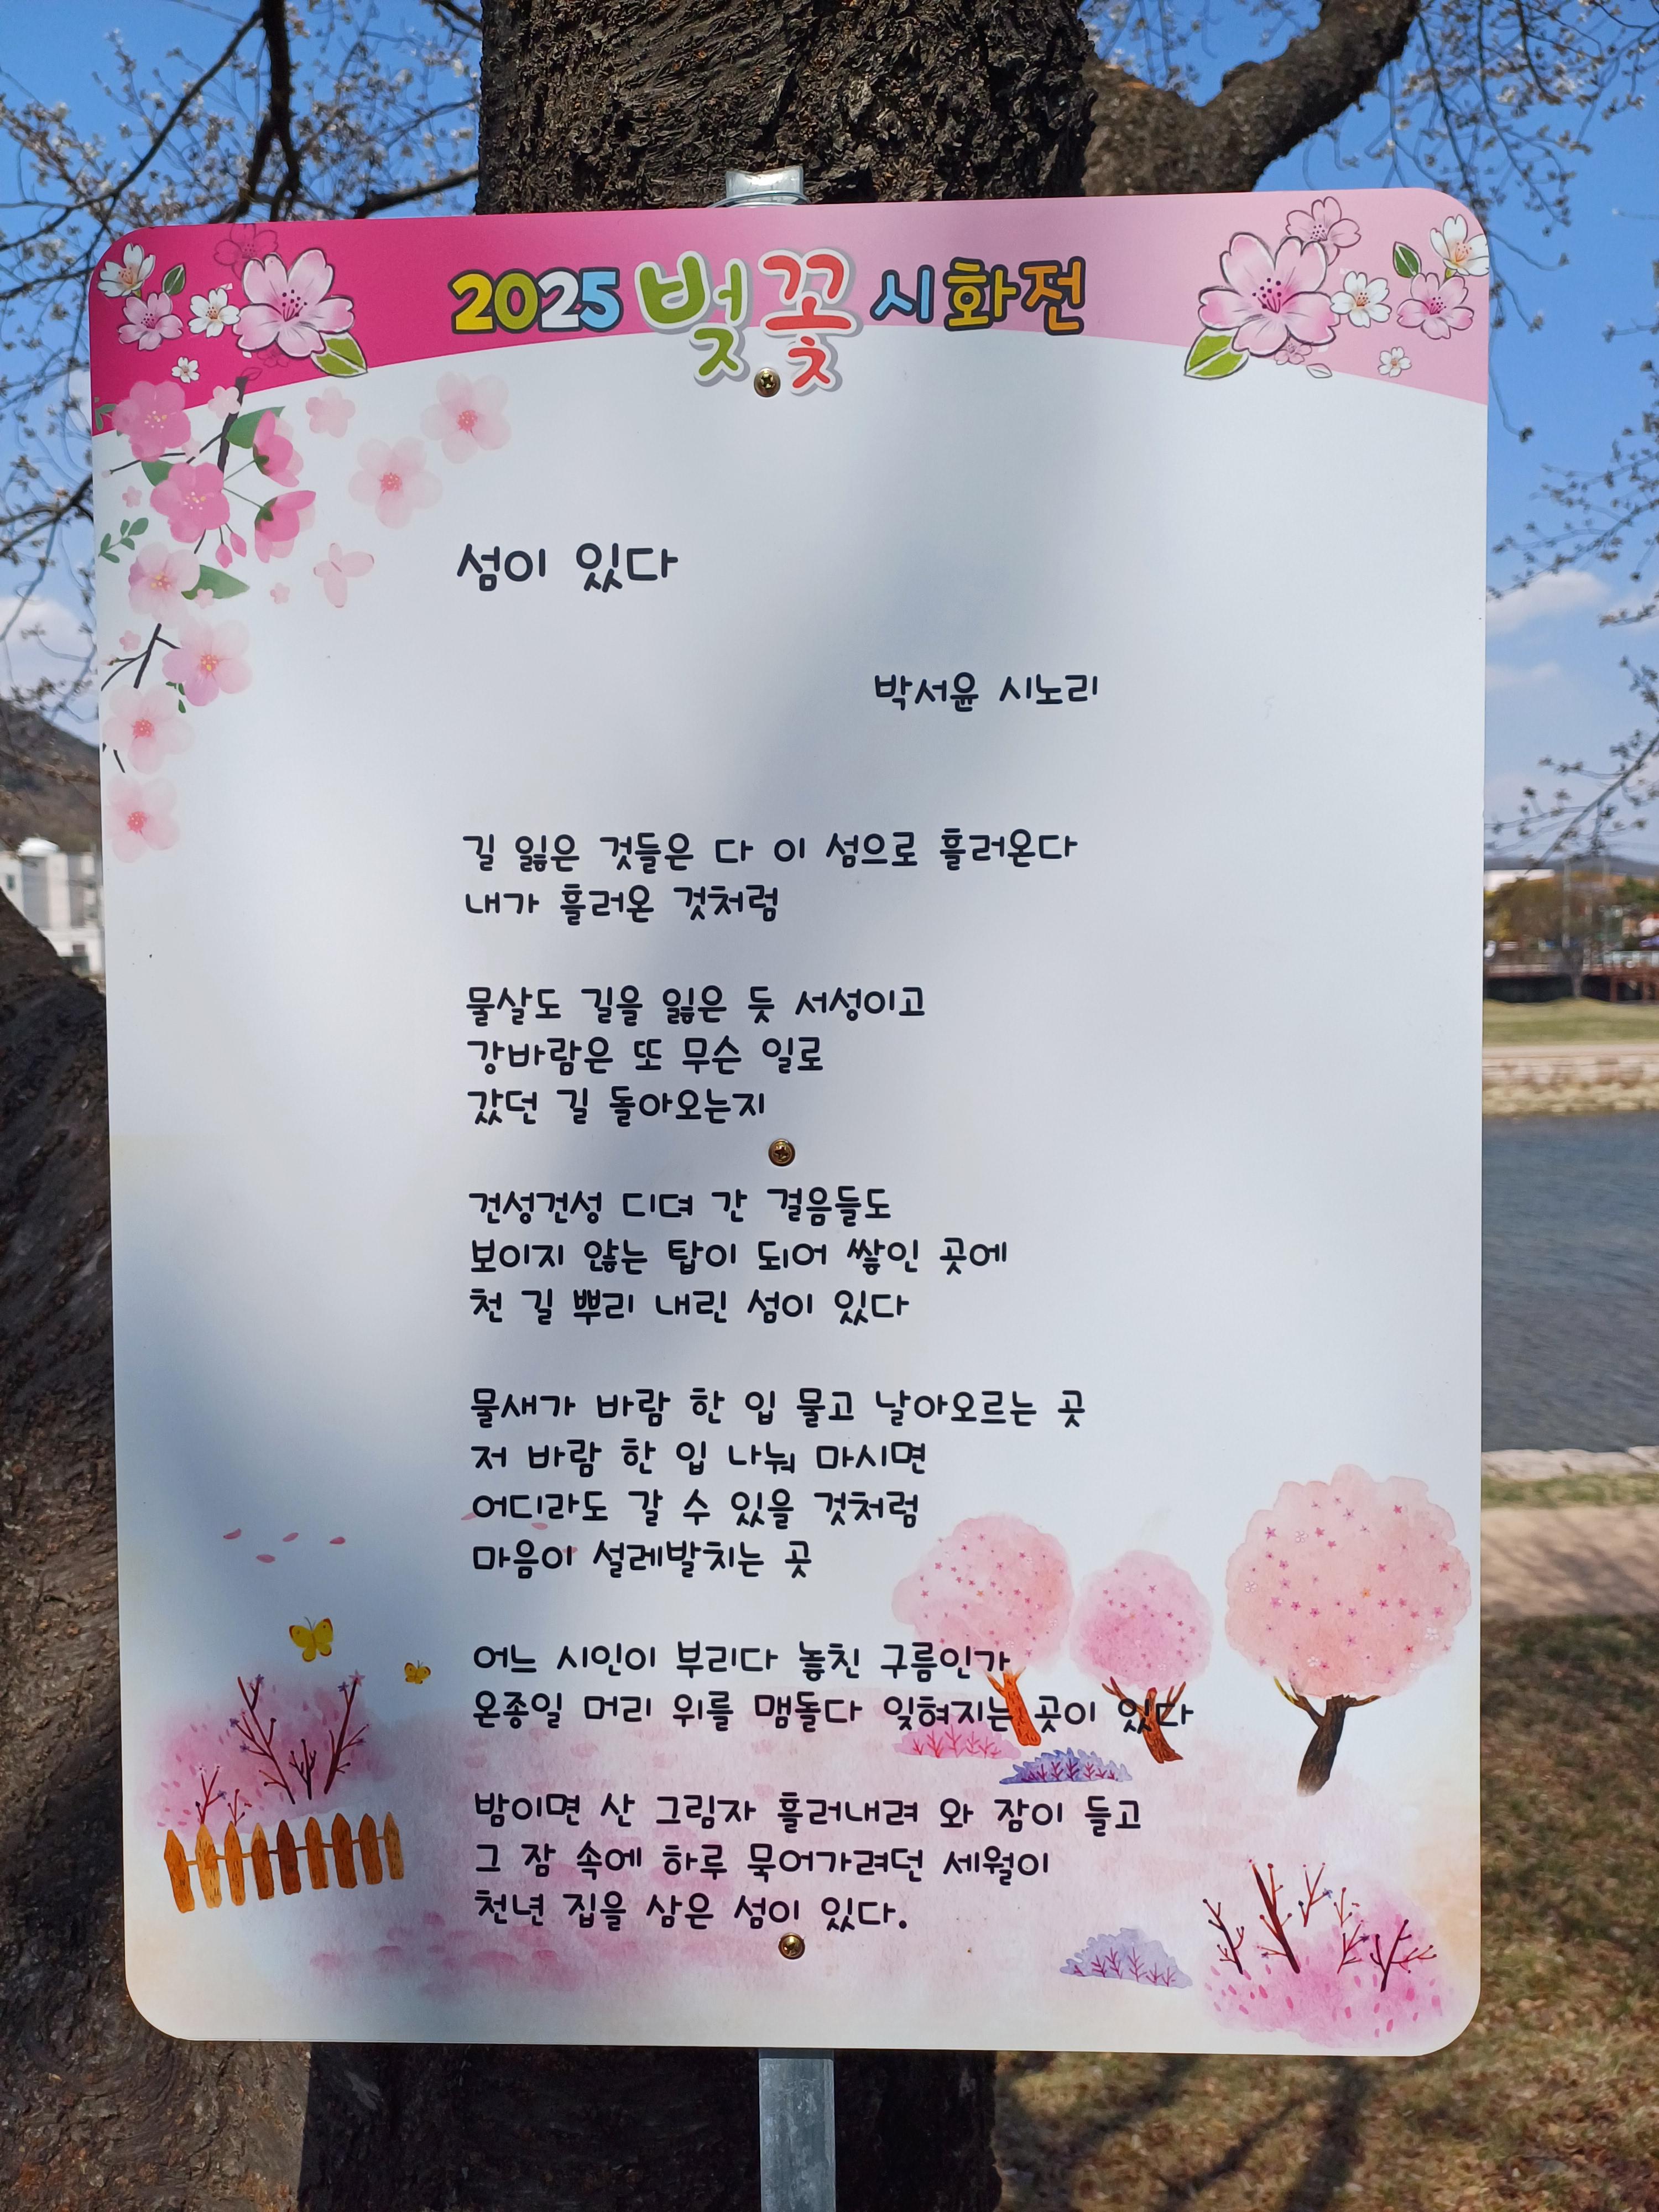 2025 벚꽃 시화전
섬이 있다
박서윤 시노리
길 잃은 것들은 다 이 섬으로 흘러온다
내가 흘러온 것처럼
물살도 길을 잃은 듯 서성이고
강바람은 또 무슨 일로
갔던 길 돌아오는지
건성건성 디뎌 간 걸음들도
보이지 않는 탑이 되어 쌓인 곳에
천 길 뿌리 내린 섬이 있다
물새가 바람 한 입 물고 날아오르는 곳
저 바람 한 입 나눠 마시면
어디라도 갈 수 있을 것처럼
마음이 설레발치는 곳
어느 시인이 부리다 놓친 구름인가
온종일 머리 위를 맴돌다 잊혀지는 곳이 있다
밤이면 산 그림자 흘러내려 와 잠이 들고
그 잠 속에 하루 묵어가려던 세월이
천년 집을 삼은 섬이 있다.